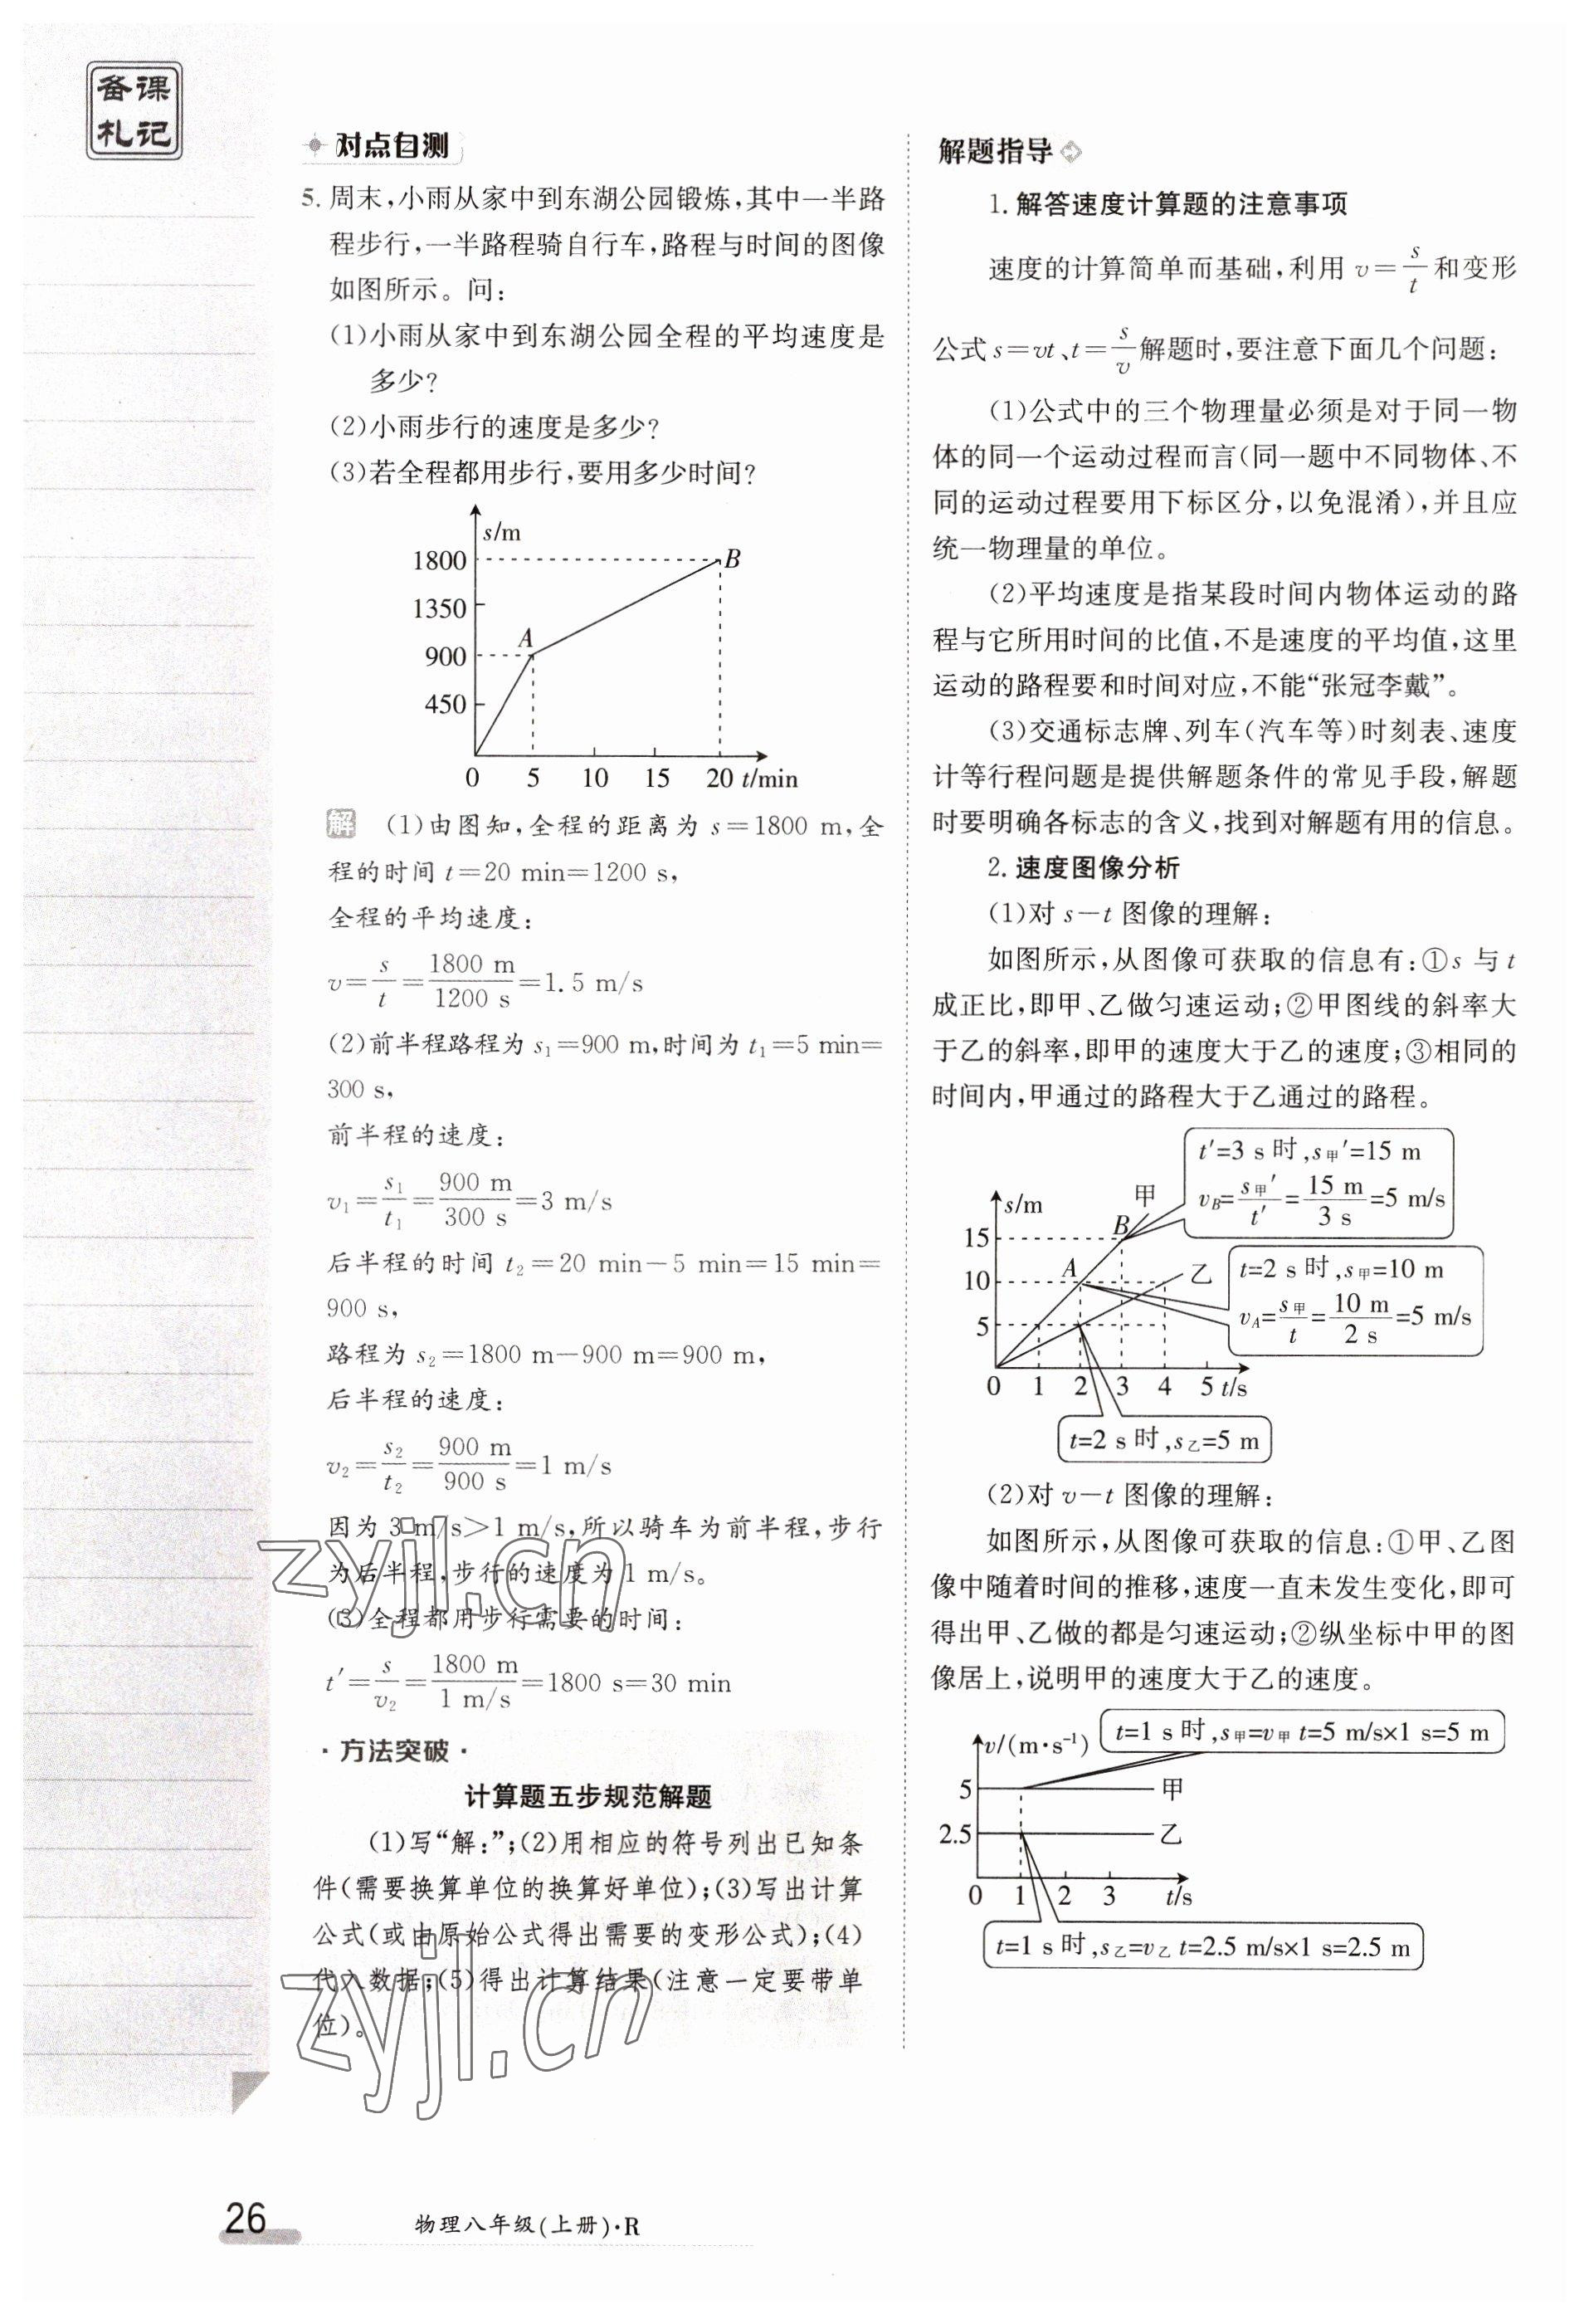 备课
札记
对点自测
5. 周末,小雨从家中到东湖公园锻炼,其中一半路
程步行,一半路程骑自行车,路程与时间的图像
如图所示。问:
(1)小雨从家中到东湖公园全程的平均速度是
多少?
(2)小雨步行的速度是多少?
(3)若全程都用步行,要用多少时间?
s/m
1800
B
1350
A
900
450
0 5 10 15 20 t/min
解 (1)由图知,全程的距离为 s=1800 m,全
程的时间 t=20 min=1200 s,
全程的平均速度:
v=s/t=1800 m/1200 s=1.5 m/s
(2)前半程路程为 s₁=900 m,时间为 t₁=5 min=
300 s,
前半程的速度:
v₁=s₁/t₁=900 m/300 s=3 m/s
后半程的时间 t₂=20 min-5 min=15 min=
900 s,
路程为 s₂=1800 m-900 m=900 m,
后半程的速度:
v₂=s₂/t₂=900 m/900 s=1 m/s
因为 3 m/s>1 m/s,所以骑车为前半程,步行
为后半程,步行的速度为 1 m/s。
(3)全程都用步行需要的时间:
t′=s/v₂=1800 m/1 m/s=1800 s=30 min
zyjl.cn
·方法突破·
计算题五步规范解题
(1)写“解:”;(2)用相应的符号列出已知条
件(需要换算单位的换算好单位);(3)写出计算
公式(或由原始公式得出需要的变形公式);(4)
代入数据;(5)得出计算结果(注意一定要带单
位)。
zyjl.cn
解题指导
1. 解答速度计算题的注意事项
速度的计算简单而基础,利用 v=s/t 和变形
公式 s=vt、t=s/v 解题时,要注意下面几个问题:
(1)公式中的三个物理量必须是对于同一物
体的同一个运动过程而言(同一题中不同物体、不
同的运动过程要用下标区分,以免混淆),并且应
统一物理量的单位。
(2)平均速度是指某段时间内物体运动的路
程与它所用时间的比值,不是速度的平均值,这里
运动的路程要和时间对应,不能“张冠李戴”。
(3)交通标志牌、列车(汽车等)时刻表、速度
计等行程问题是提供解题条件的常见手段,解题
时要明确各标志的含义,找到对解题有用的信息。
2. 速度图像分析
(1)对 s-t 图像的理解:
如图所示,从图像可获取的信息有:①s 与 t
成正比,即甲、乙做匀速运动;②甲图线的斜率大
于乙的斜率,即甲的速度大于乙的速度;③相同的
时间内,甲通过的路程大于乙通过的路程。
t′=3 s 时,s甲′=15 m
vB=s甲′/t′=15 m/3 s=5 m/s
s/m
甲
15
B
t=2 s 时,s甲=10 m
vA=s甲/t=10 m/2 s=5 m/s
10
A
乙
5
0 1 2 3 4 5 t/s
t=2 s 时,s乙=5 m
(2)对 v-t 图像的理解:
如图所示,从图像可获取的信息:①甲、乙图
像中随着时间的推移,速度一直未发生变化,即可
得出甲、乙做的都是匀速运动;②纵坐标中甲的图
像居上,说明甲的速度大于乙的速度。
t=1 s 时,s甲=v甲 t=5 m/s×1 s=5 m
v/(m·s⁻¹)
5
甲
2.5
乙
0 1 2 3 t/s
t=1 s 时,s乙=v乙 t=2.5 m/s×1 s=2.5 m
26
物理八年级(上册)·R